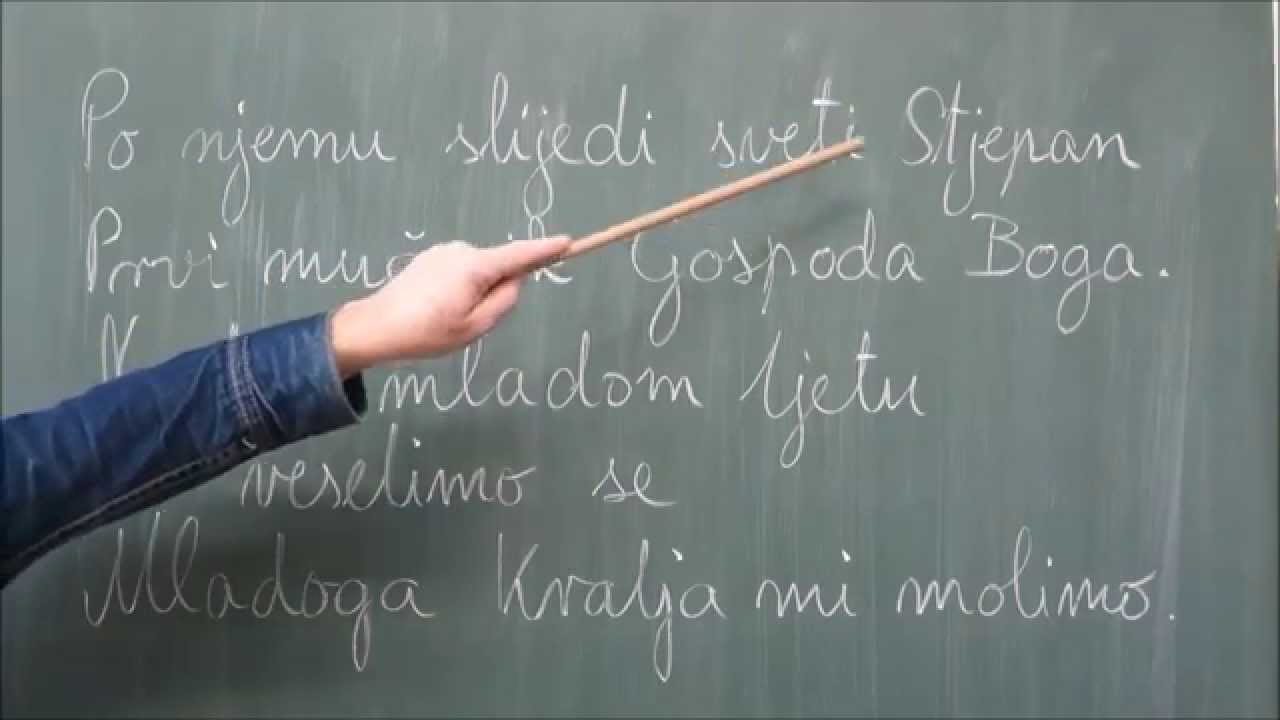 Po njemu slijedi sveti Stjepan
Prvi mučenik Gospoda Boga.
mladom ljetu
veselimo se
Mladoga Kralja mi molimo.